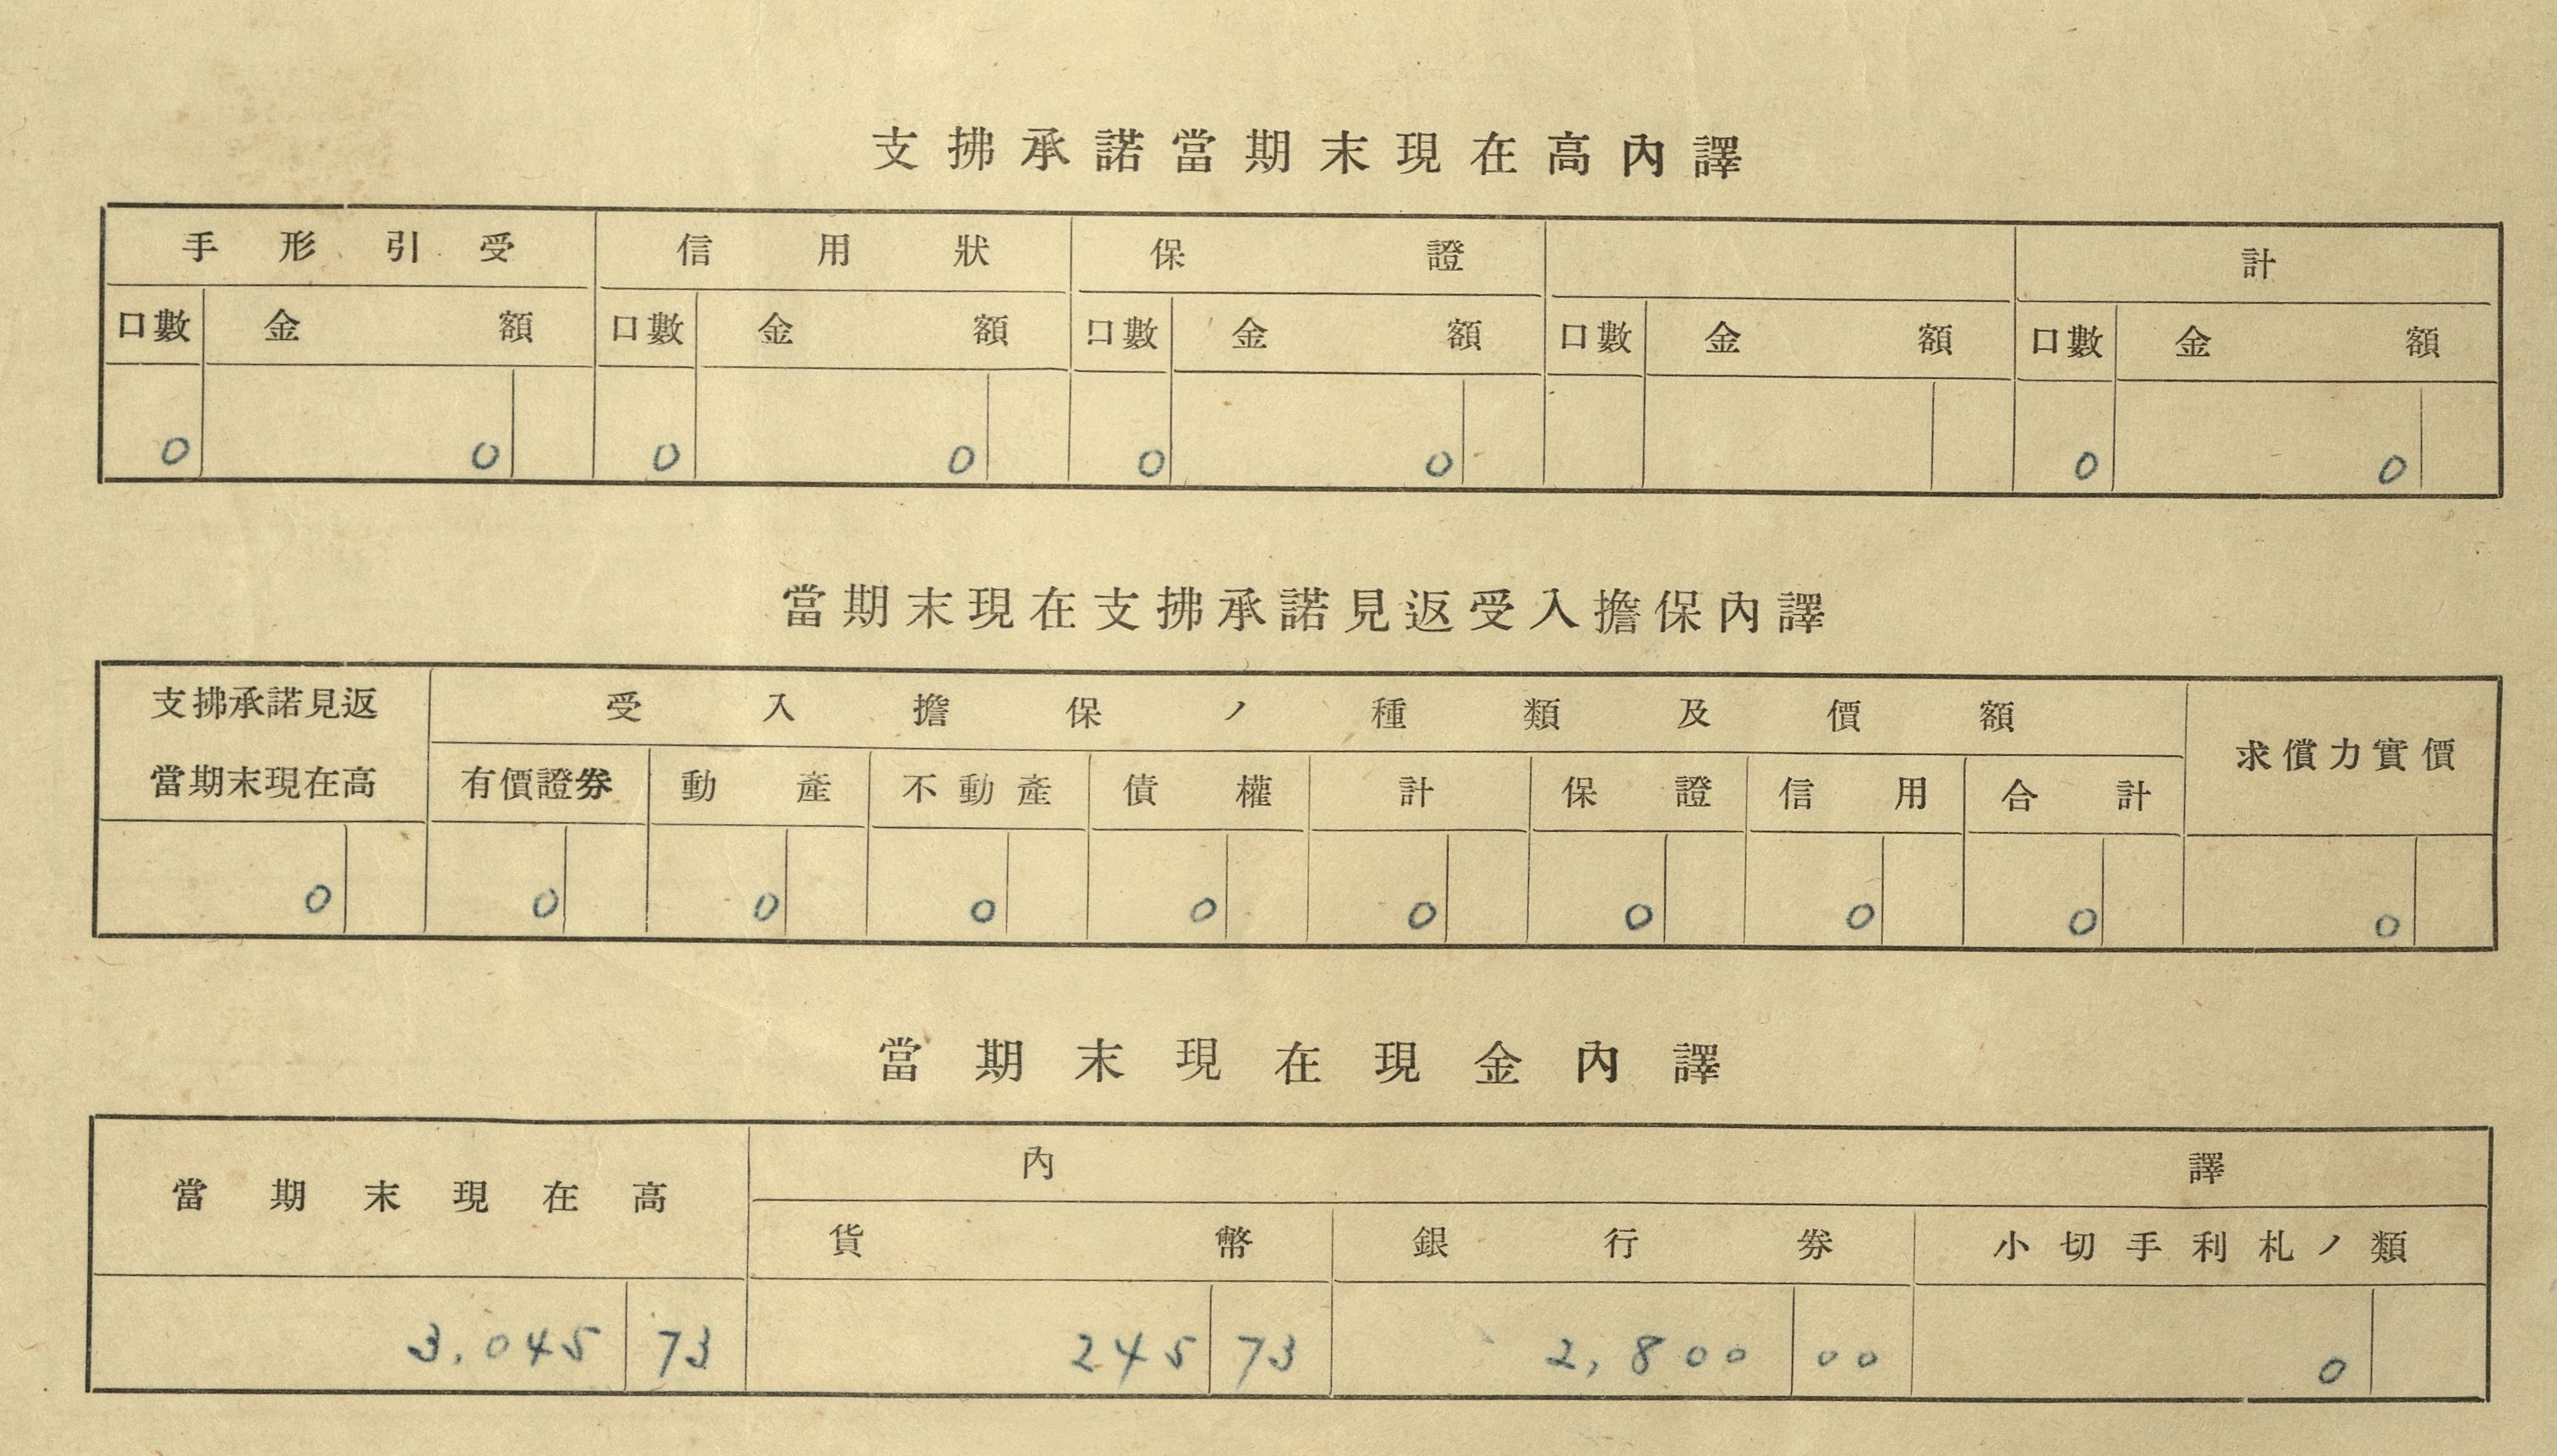 支拂承諾當期末現在高內譯
手形引受 信用狀 保證 計
口數 金額 口數 金額 口數 金額 口數 金額 口數 金額
0 0 0 0 0 0 0 0
當期末現在支拂承諾見返受入擔保內譯
支拂承諾見返 受入擔保ノ種類及價額
當期末現在高 有價證券 動產 不動產 債權 計 保證 信用 合計 求償力實價
0 0 0 0 0 0 0 0 0 0
當期末現在現金內譯
當期末現在高 內譯
貨幣 銀行券 小切手利札ノ類
3,045 73 245 73 2,800 00 0